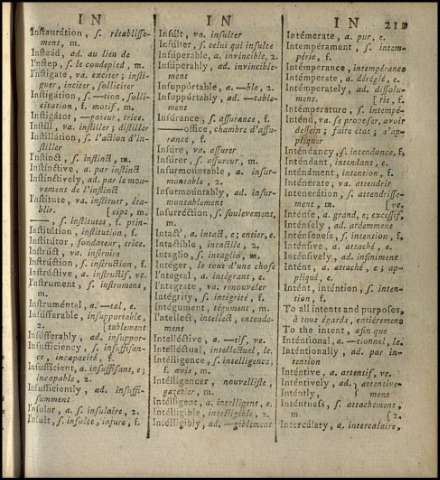 IN
IN
IN 219
Instauration, s. rétablisse-
ment, m.
Instead, ad. au lieu de
Instep, s. le coudepied, m.
Instigate, va. exciter; insti-
guer, inciter, solliciter
Instigation, s. —tion, solli-
citation, f. motif, m.
Instigator, —gateur, trice.
Instill, va. instiller; distiller
Instillation, s. l'action d'in-
stiller
Instinct, s. instinct, m.
Instinctive, a. par instinct
Instinctively, ad. par le mou-
vement de l'instinct
Institute, va. instituer, éta-
blir. [cipe, m.
—, s. institutes, f. prin-
Institution, institution, f.
Institutor, fondateur, trice.
Instruct, va. instruire
Instruction, s. instruction, f.
Instructive, a. instructif, ve.
Instrument, s. instrument,
m.
Instrumental, a. —tal, e.
Insufferable, insupportable,
2. [tablement
Insufferably, ad. insuppor-
Insufficiency, s. insuffisan-
ce, incapacité, f.
Insufficient, a. insuffisant, e;
incapable, 2.
Insufficiently, ad. insuffi-
samment
Insular, a. s. insulaire, 2.
Insult, s. insulte, injure, f.
Insúlt, va. insulter
Insúlter, s. celui qui insulte
Insúperable, a. invincible, 2.
Insúperably, ad. invincible-
ment
Insuppórtable, a. —ble, 2.
Insuppórtably, ad. —table-
ment
Insúrance, s. assurance, f.
—office, chambre d'assu-
rance, f.
Insúre, va. assurer
Insúrer, s. assureur, m.
Insurmoúntable, a. insur-
montable, 2.
Insurmoúntably, ad. insur-
montablement
Insurréction, s. soulevement,
m.
Intáct, a. intact, e; entier, e.
Intáctible, intactile, 2.
Intáglio, s. intaglio, m.
Integer, le tout d'une chose
Integral, a. intégrant, e.
Integrate, va. renouveler
Intégrity, intégrité, f.
Intégument, tégument, m.
Intellect, intellect, entende-
ment
Intelléctive, a. —tif, ve.
Intelléctual, intellectuel, le.
Intélligence, s. intelligence,
f. avis, m.
Intélligencer, nouvelliste,
gazetier, m.
Intélligent, a. intelligent, e.
Intélligible, intelligible, 2.
Intélligibly, ad. —giblement
Intémerate, a. pur, e.
Intemperament, s. intem-
périe, f.
Intémperance, intempérance
Intémperate, a. déréglé, e.
Intémperately, ad. dissolu-
ment. [rie, f.
Intémperature, s. intempé-
Inténd, va. se proposer, avoir
dessein; faire état; s'ap-
pliquer
Inténdancy, s. intendance, f.
Inténdant, intendant, e.
Inténdment, intention, f.
Inténerate, va. attendrir
Inteneration, s. attendrisse-
ment, m. [ve.
Inténse, a. grand, e; excessif,
Inténsely, ad. ardemment
Inténseness, s. intention, f.
Inténsive, a. attaché, e.
Inténsively, ad. infiniment
Intént, a. attaché, e; ap-
pliqué, e.
Intént, inténtion, s. inten-
tion, f.
To all intents and purposes,
à tous égards, entièrement
To the intent, afin que
Inténtional, a. —tionnel, le.
Inténtionally, ad. par in-
tention
Inténtive, a. attentif, ve.
Inténtively, ad. attentive-
Inténtly, ment
Inténtness, s. attachement,
m.
Intercalary, a. intercalaire,